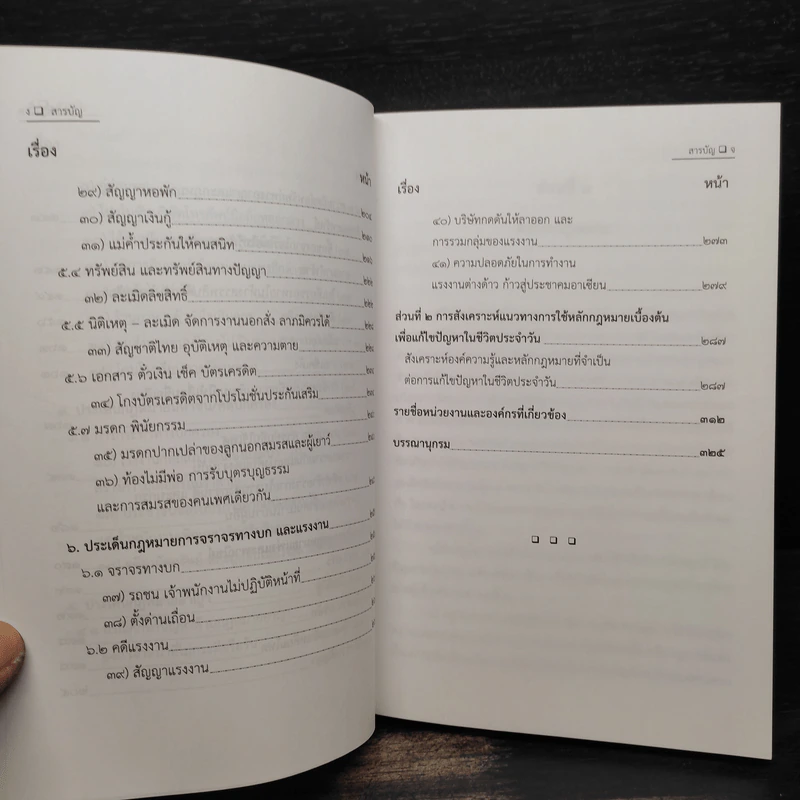 ง ❑ สารบัญ
เรื่อง
หน้า
๒๙) สัญญาหอพัก
๓๐) สัญญาเงินกู้
๓๑) แม่ค้ำประกันให้คนสนิท
๕.๔ ทรัพย์สิน และทรัพย์สินทางปัญญา
๓๒) ละเมิดลิขสิทธิ์
๕.๕ นิติเหตุ – ละเมิด จัดการงานนอกสั่ง ลาภมิควรได้
๓๓) สัญชาติไทย อุบัติเหตุ และความตาย
๕.๖ เอกสาร ตั๋วเงิน เช็ค บัตรเครดิต
๓๔) โกงบัตรเครดิตจากโปรโมชั่นประกันเสริม
๕.๗ มรดก พินัยกรรม
๓๕) มรดกปากเปล่าของลูกนอกสมรสและผู้เยาว์
๓๖) ท้องไม่มีพ่อ การรับบุตรบุญธรรม
และการสมรสของคนเพศเดียวกัน
๖. ประเด็นกฎหมายการจราจรทางบก และแรงงาน
๖.๑ จราจรทางบก
๓๗) รถชน เจ้าพนักงานไม่ปฏิบัติหน้าที่
๓๘) ตั้งด่านเถื่อน
๖.๒ คดีแรงงาน
๓๙) สัญญาแรงงาน
สารบัญ ❑ จ
เรื่อง หน้า
๔๐) บริษัทกดดันให้ลาออก และ
การรวมกลุ่มของแรงงาน ๒๗๓
๔๑) ความปลอดภัยในการทำงาน
แรงงานต่างด้าว ก้าวสู่ประชาคมอาเซียน ๒๗๙
ส่วนที่ ๒ การสังเคราะห์แนวทางการใช้หลักกฎหมายเบื้องต้น
เพื่อแก้ไขปัญหาในชีวิตประจำวัน ๒๘๗
สังเคราะห์องค์ความรู้และหลักกฎหมายที่จำเป็น
ต่อการแก้ไขปัญหาในชีวิตประจำวัน ๒๘๗
รายชื่อหน่วยงานและองค์กรที่เกี่ยวข้อง ๓๑๒
บรรณานุกรม ๓๒๕